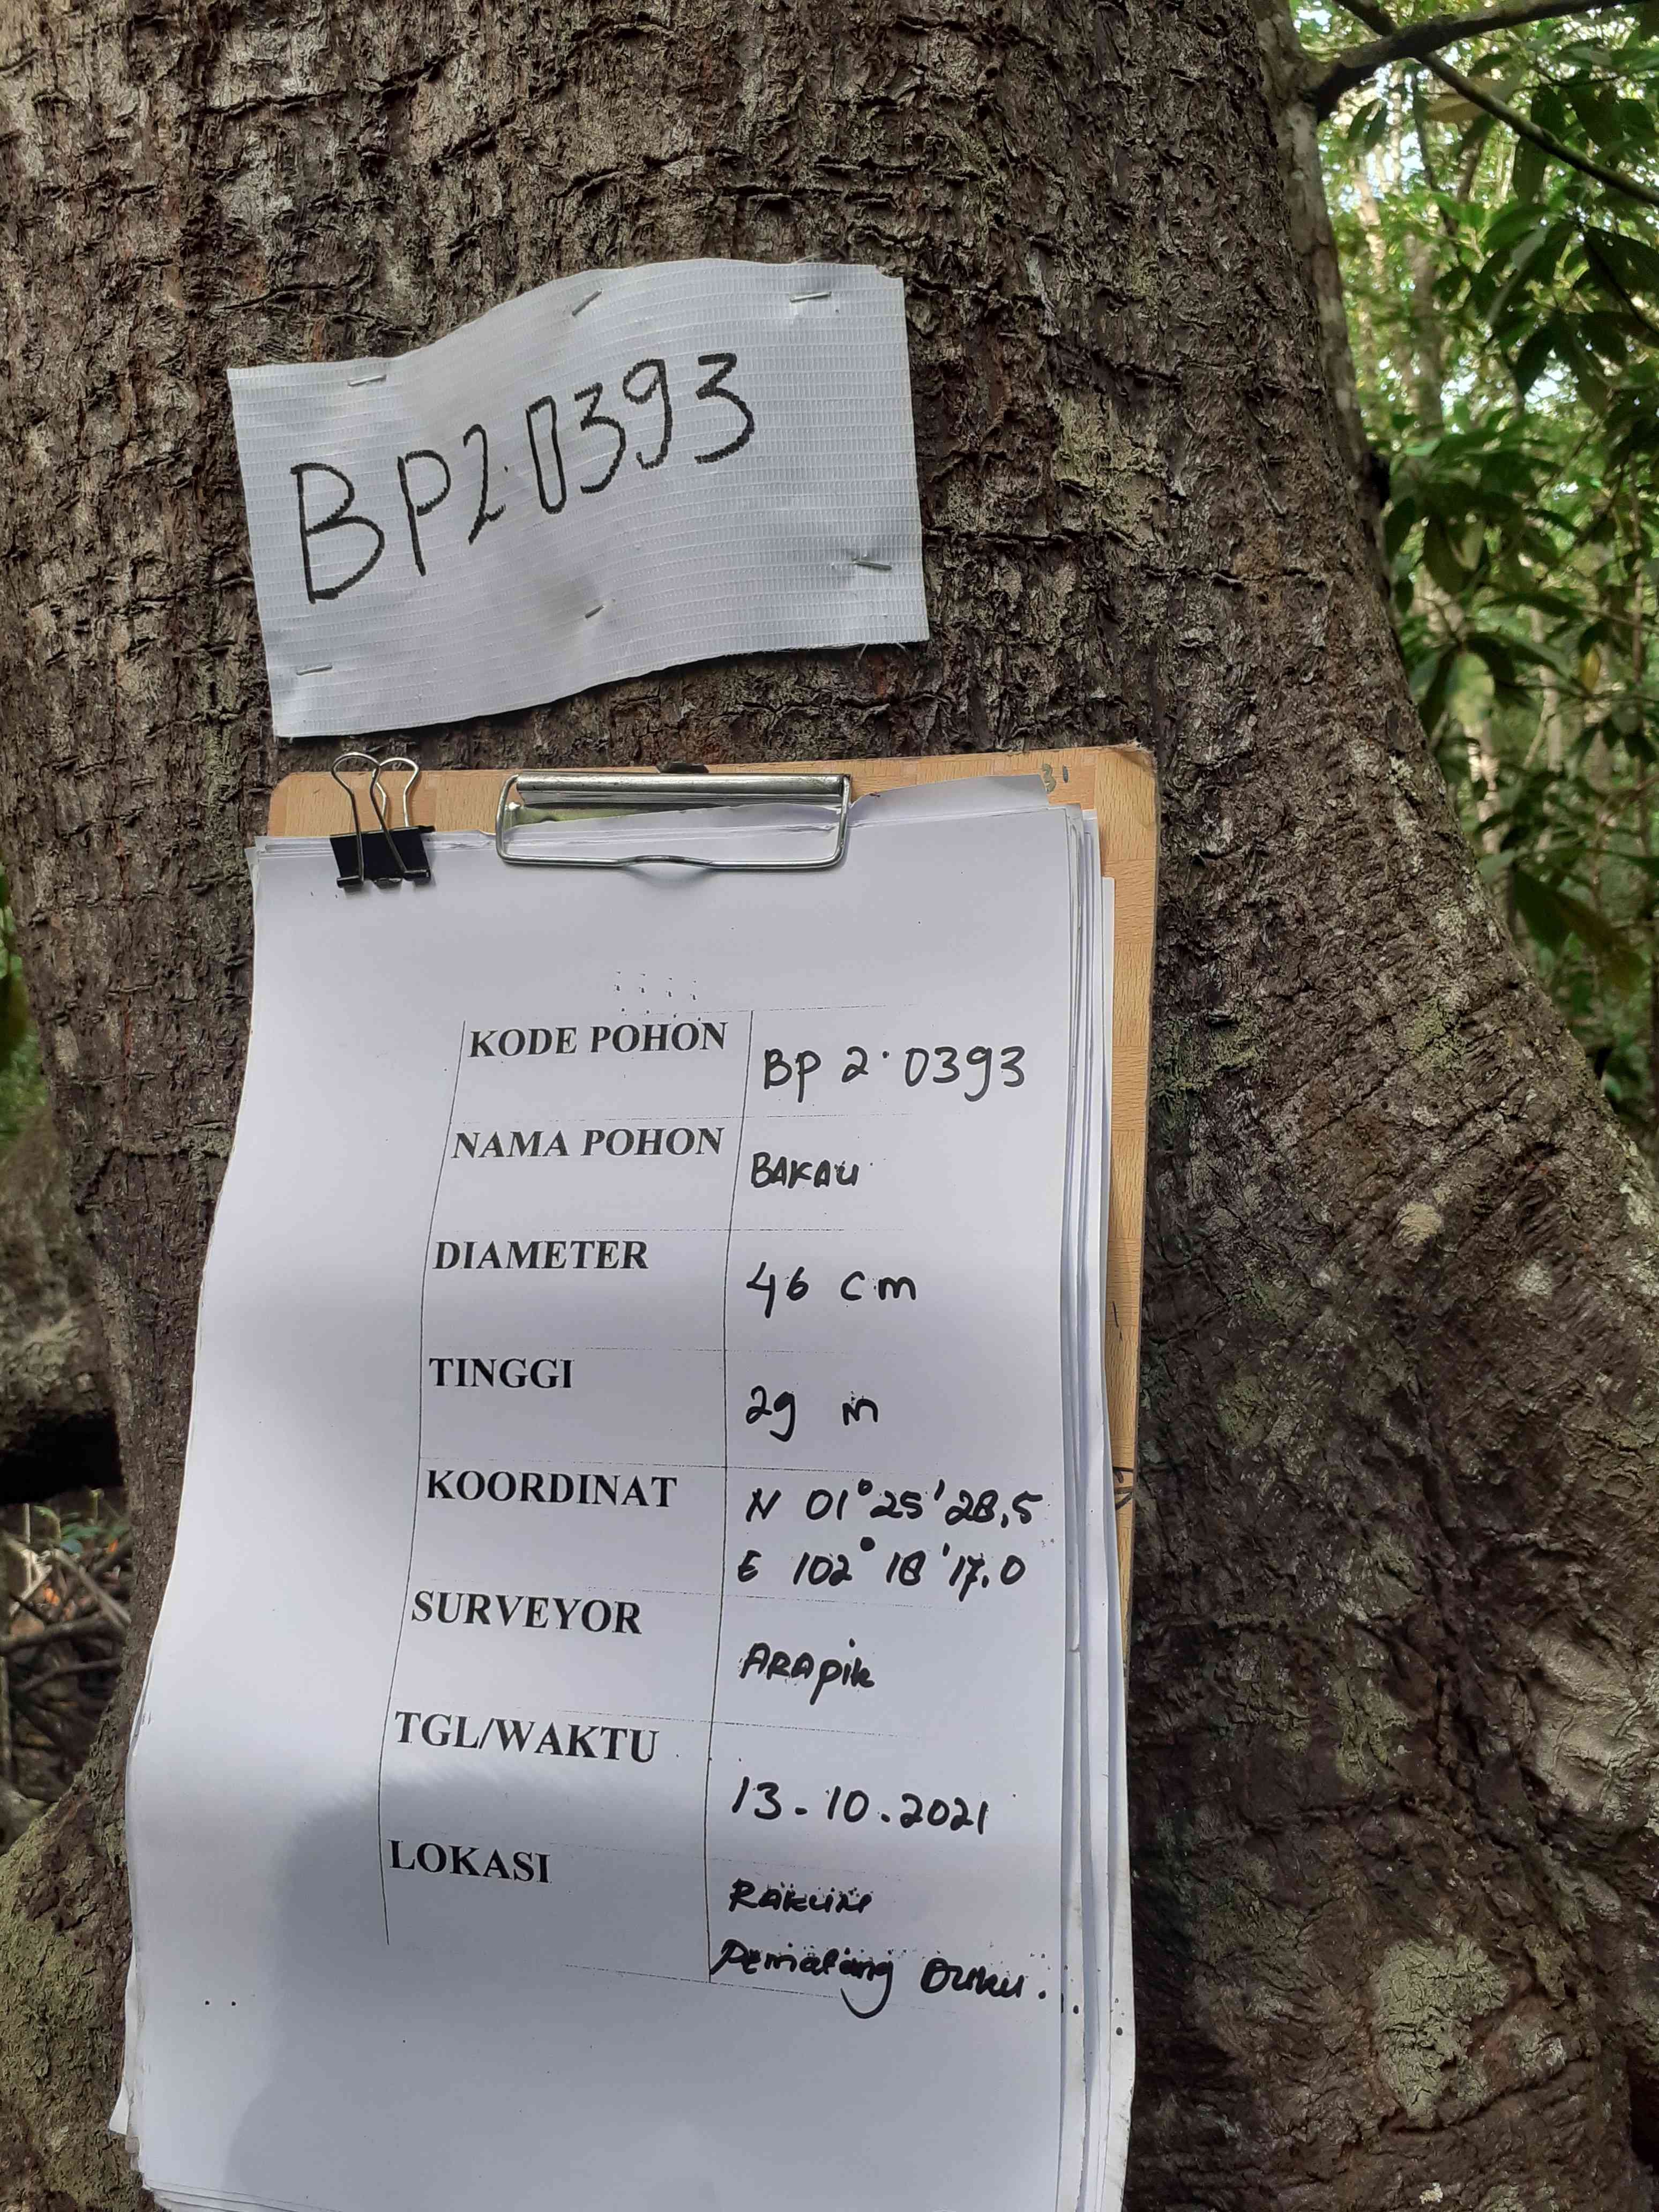 BP2.0393
KODE POHON BP 2.0393
NAMA POHON BAKAU
DIAMETER 46 cm
TINGGI 29 m
KOORDINAT N 01°25'28,5
E 102°18'17.0
SURVEYOR ARApik
TGL/WAKTU 13-10.2021
LOKASI
Pematang Duku.